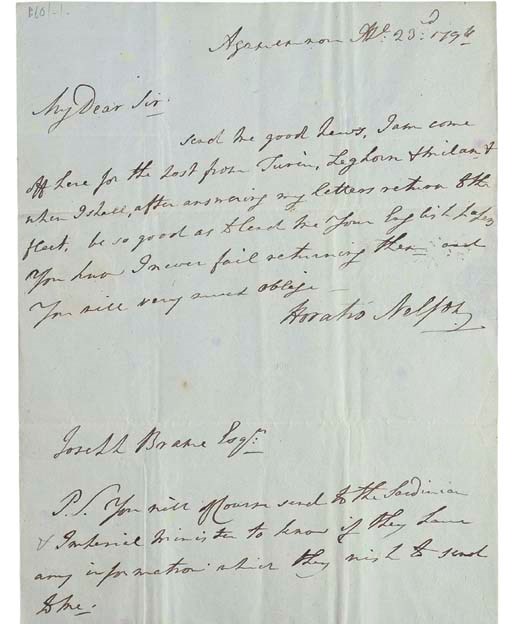 Agamemnon Ap: 23:d 1796
My Dear Sir:
send me good News, I am come
off here for the Post from Turin, Leghorn & Milan &
when I shall, after answering my letters return to the
fleet. be so good as to lend me Your English papers
You know I never fail returning them and
You will very much oblige
Horatio Nelson
Joseph Brame Esqr:
P.S. You will of Course send to the Sardinian
& Imperial Minister to know if they have
any information which they wish to send
to me.